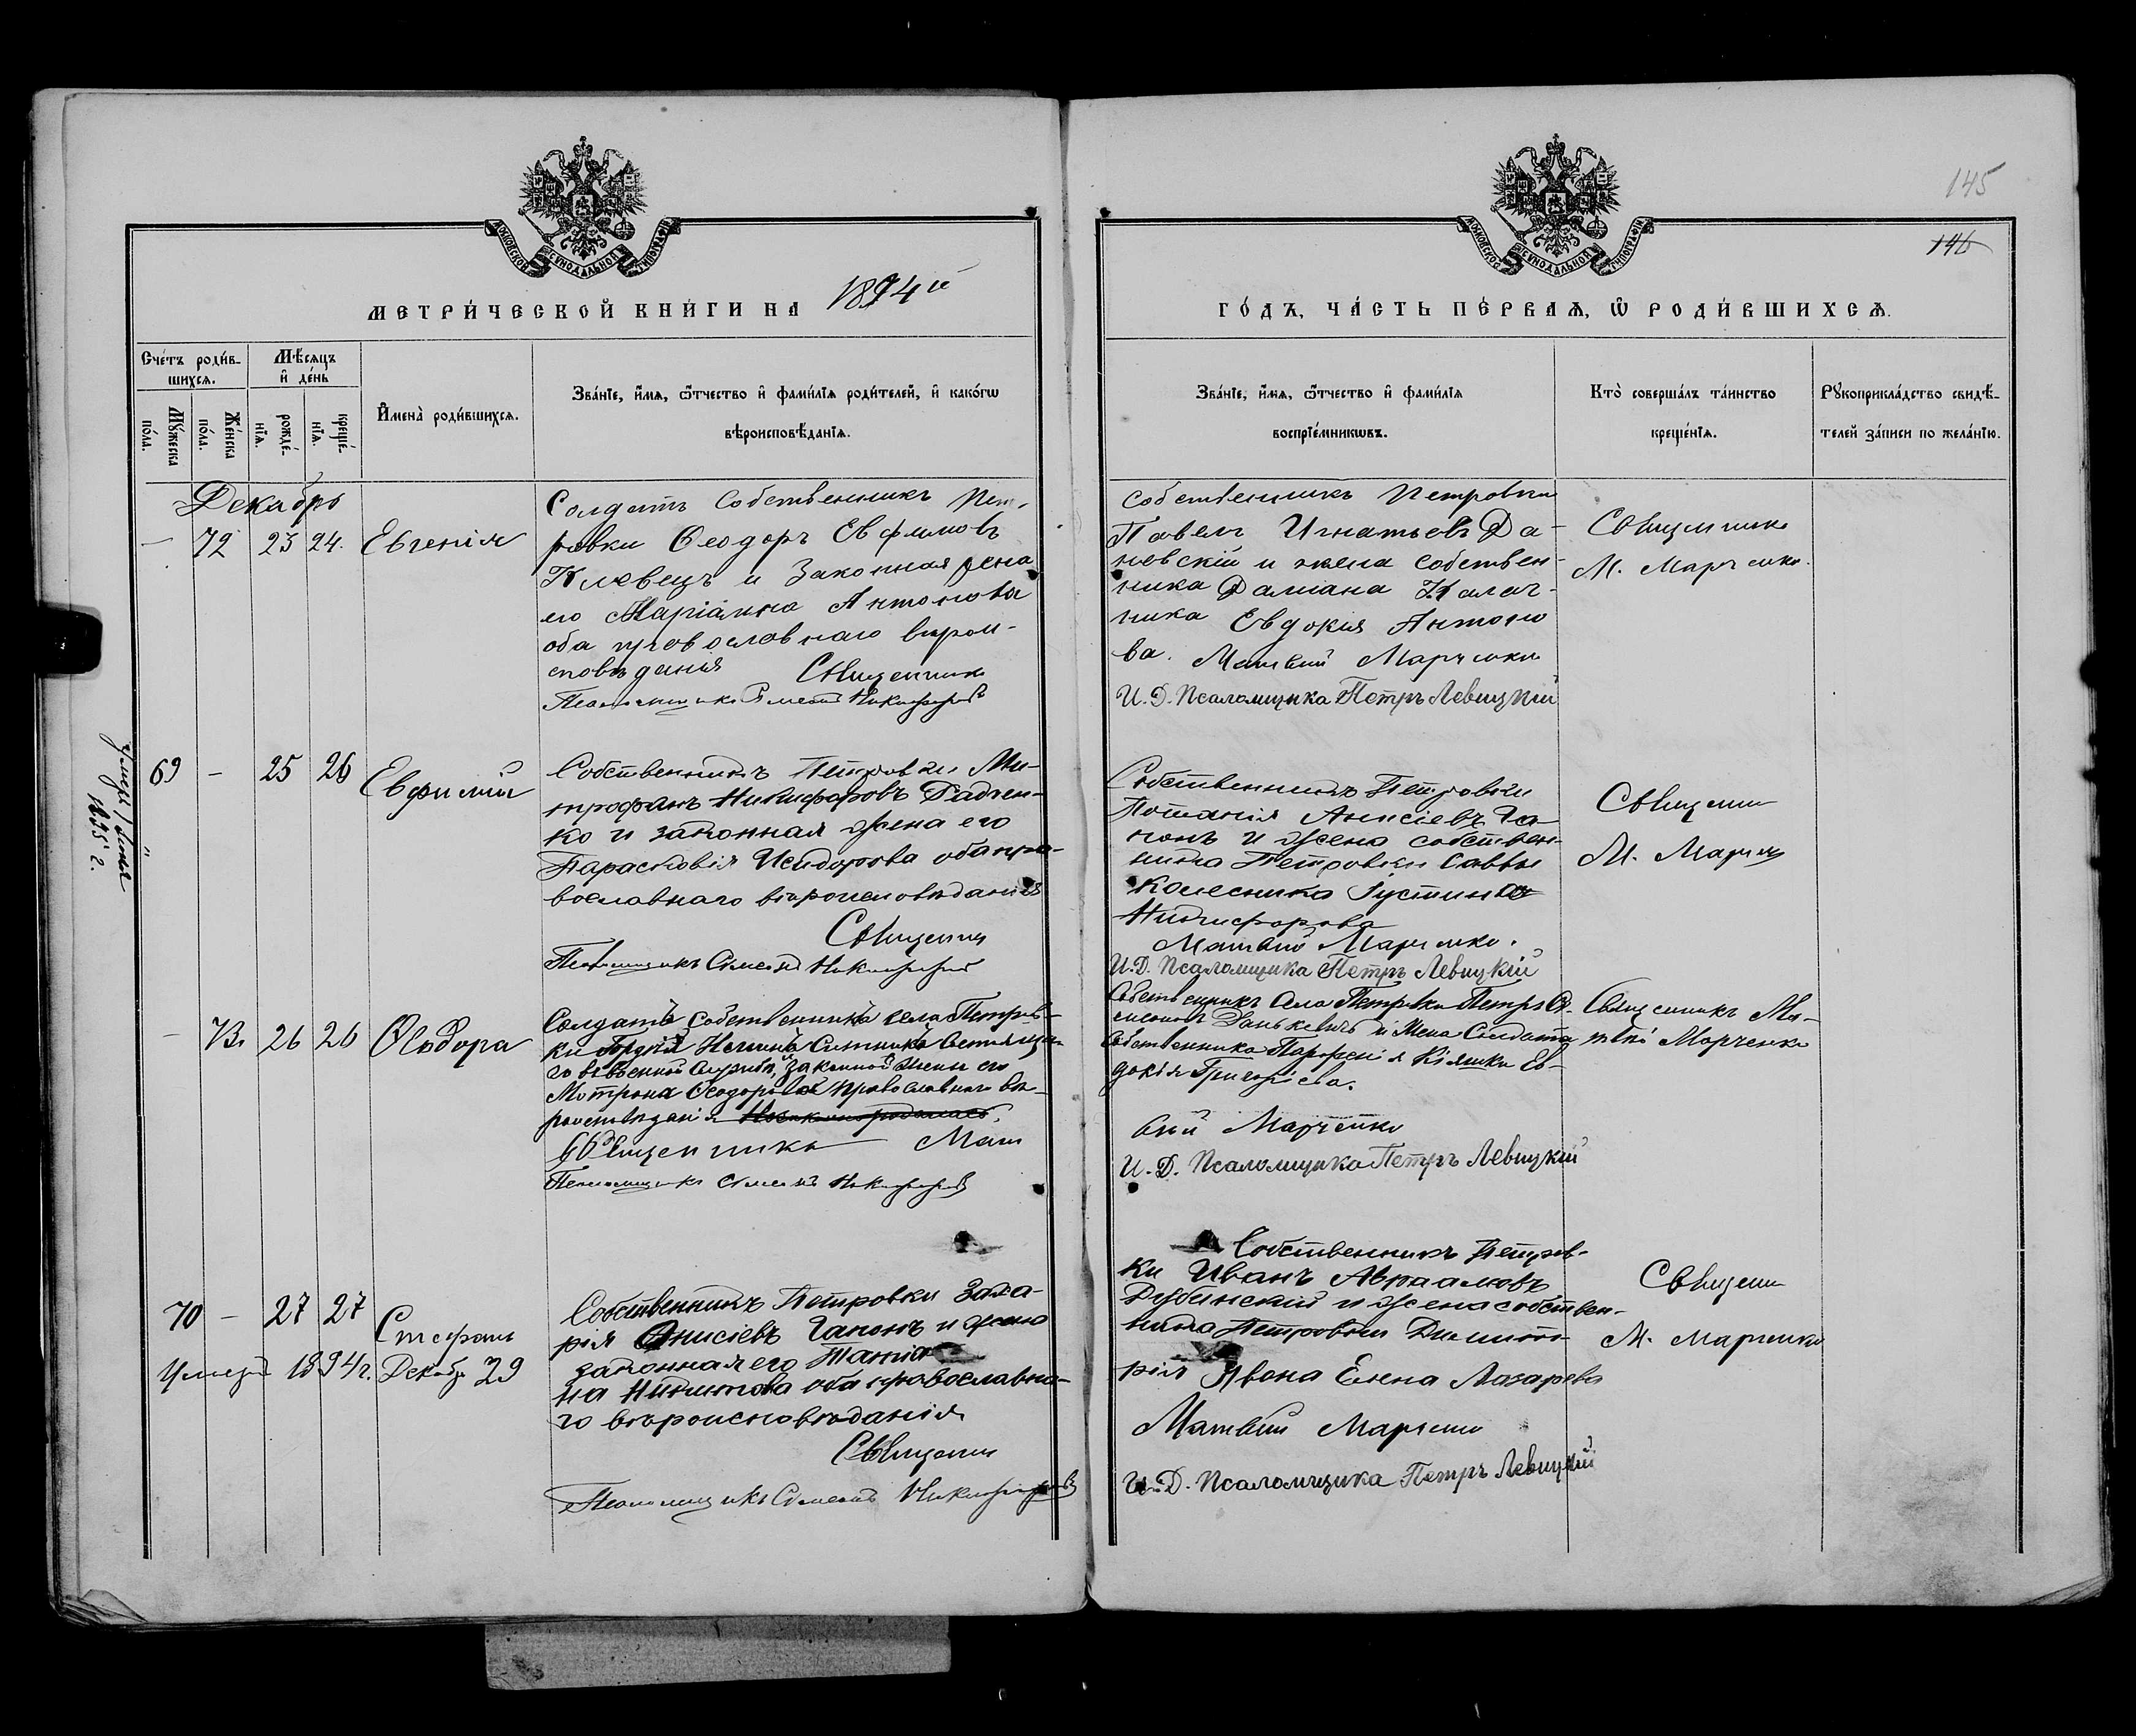 145
146
МОСКОВСКОЙ СѴНОДАЛЬНОЙ ТИПОГРАФІИ
МОСКОВСКОЙ СѴНОДАЛЬНОЙ ТИПОГРАФІИ
МЕТРИ́ЧЕСКОЙ КНИ́ГИ НА 1894 й
ГО́ДЪ, ЧА́СТЬ ПЕ́РВАѦ, Ѿ РОДИ́ВШИХСѦ.
Сче́тъ роди́в-
шихсѧ.
Мѣ́сѧцъ
и҆ де́нь
Мꙋ́жеска
по́ла.
Же́нска
по́ла.
рожде́-
нїѧ.
креще́-
нїѧ.
И҆мена̀ роди́вшихсѧ.
Зва́нїе, и҆́мѧ, ѻ҆́тчество и҆ фами́лїѧ роди́телей, и҆ како́гѡ
вѣроисповѣ́данїѧ.
Зва́нїе, и҆́мѧ, ѻ҆́тчество и҆ фами́лїѧ
воспрїе́мникѡвъ.
Кто̀ соверша́лъ та́инство
креще́нїѧ.
Рꙋкоприкла́дство свидѣ́-
телей за́писи по жела́нїю.
Декабрь
— 72 23 24. Евгенія
Солдатъ Собственникъ Пет-
ровки Ѳеодоръ Евфимовъ
Плевецъ и Законная жена
его Маріанна Антонова
оба православнаго вѣрои-
сповѣданія Священникъ
Псаломщикъ Симеонъ Никифоровъ
Собственникъ Петровки
Павелъ Игнатьевъ Да-
невскій и жена собствен-
ника Даміана Калач-
ника Евдокія Антоно
ва. Матвѣй Марченко
И. Д. Псаломщика Петръ Левицкій
Священникъ
М. Марченко.
69 — 25 26 Евфимій
1895 г.
Собственникъ Петровки Ми-
трофанъ Никифоровъ Радчен-
ко и законная жена его
Параскевія Исидорова оба пра-
вославнаго вѣроисповѣданія
Священни
Псаломщикъ Симеонъ Никифоровъ
Собственникъ Петровки
Потапій Анисіевъ Га-
понъ и жена собствен-
ника Петровки Саввы
Колесника Іустина
Никифорова
Матвѣй Марченко.
И. Д. Псаломщика Петръ Левицкій
Священни
М. Марч
— 73. 26 26 Ѳеодора
Солдата Собственника села Петров-
ки Гордѣя Ситника
го въ военной службѣ, законной жены его
Мотрона Ѳеодорова православнаго вѣ-
роисповѣданія
Священникъ Мат
Псаломщикъ Симеонъ Никифоровъ
Собственникъ села Петровки Петръ Си-
меоновъ Данькевичъ и жена Солдата
Собственника Парфенія Кіяшки Ев-
докія Григоріева.
вѣй Марченко
И. Д. Псаломщика Петръ Левицкій
Священникъ Ма-
твѣй Марченко
70 — 27 27 Стефанъ
Умеръ 1894 г. Декабр 29
Собственникъ Петровки Заха-
рія Анисіевъ Гапонъ и жена
законная его Татіа
на Никитова оба православна-
го вѣроисповѣданія
Священни
Псаломщикъ Симеонъ Никифоровъ
Собственникъ Петров-
ки Иванъ Авраамовъ
Дубинскій и жена собствен-
ника Петровки Димит-
рія Явона Елена Лазарева
Матвѣй Марченко
И. Д. Псаломщика Петръ Левицкій
Священ
М. Марченко